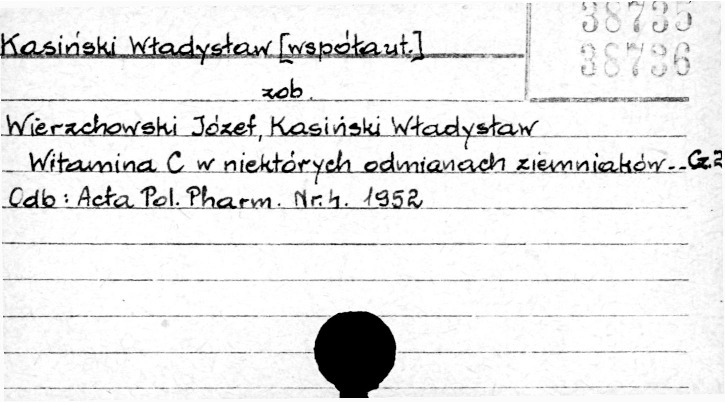 38735
38736
Kasiński Władysław [współaut.]
zob.
Wierzchowski Józef, Kasiński Władysław
Witamina C w niektórych odmianach ziemniaków.. Cz.2
Odb: Acta Pol. Pharm. Nr. 4. 1952